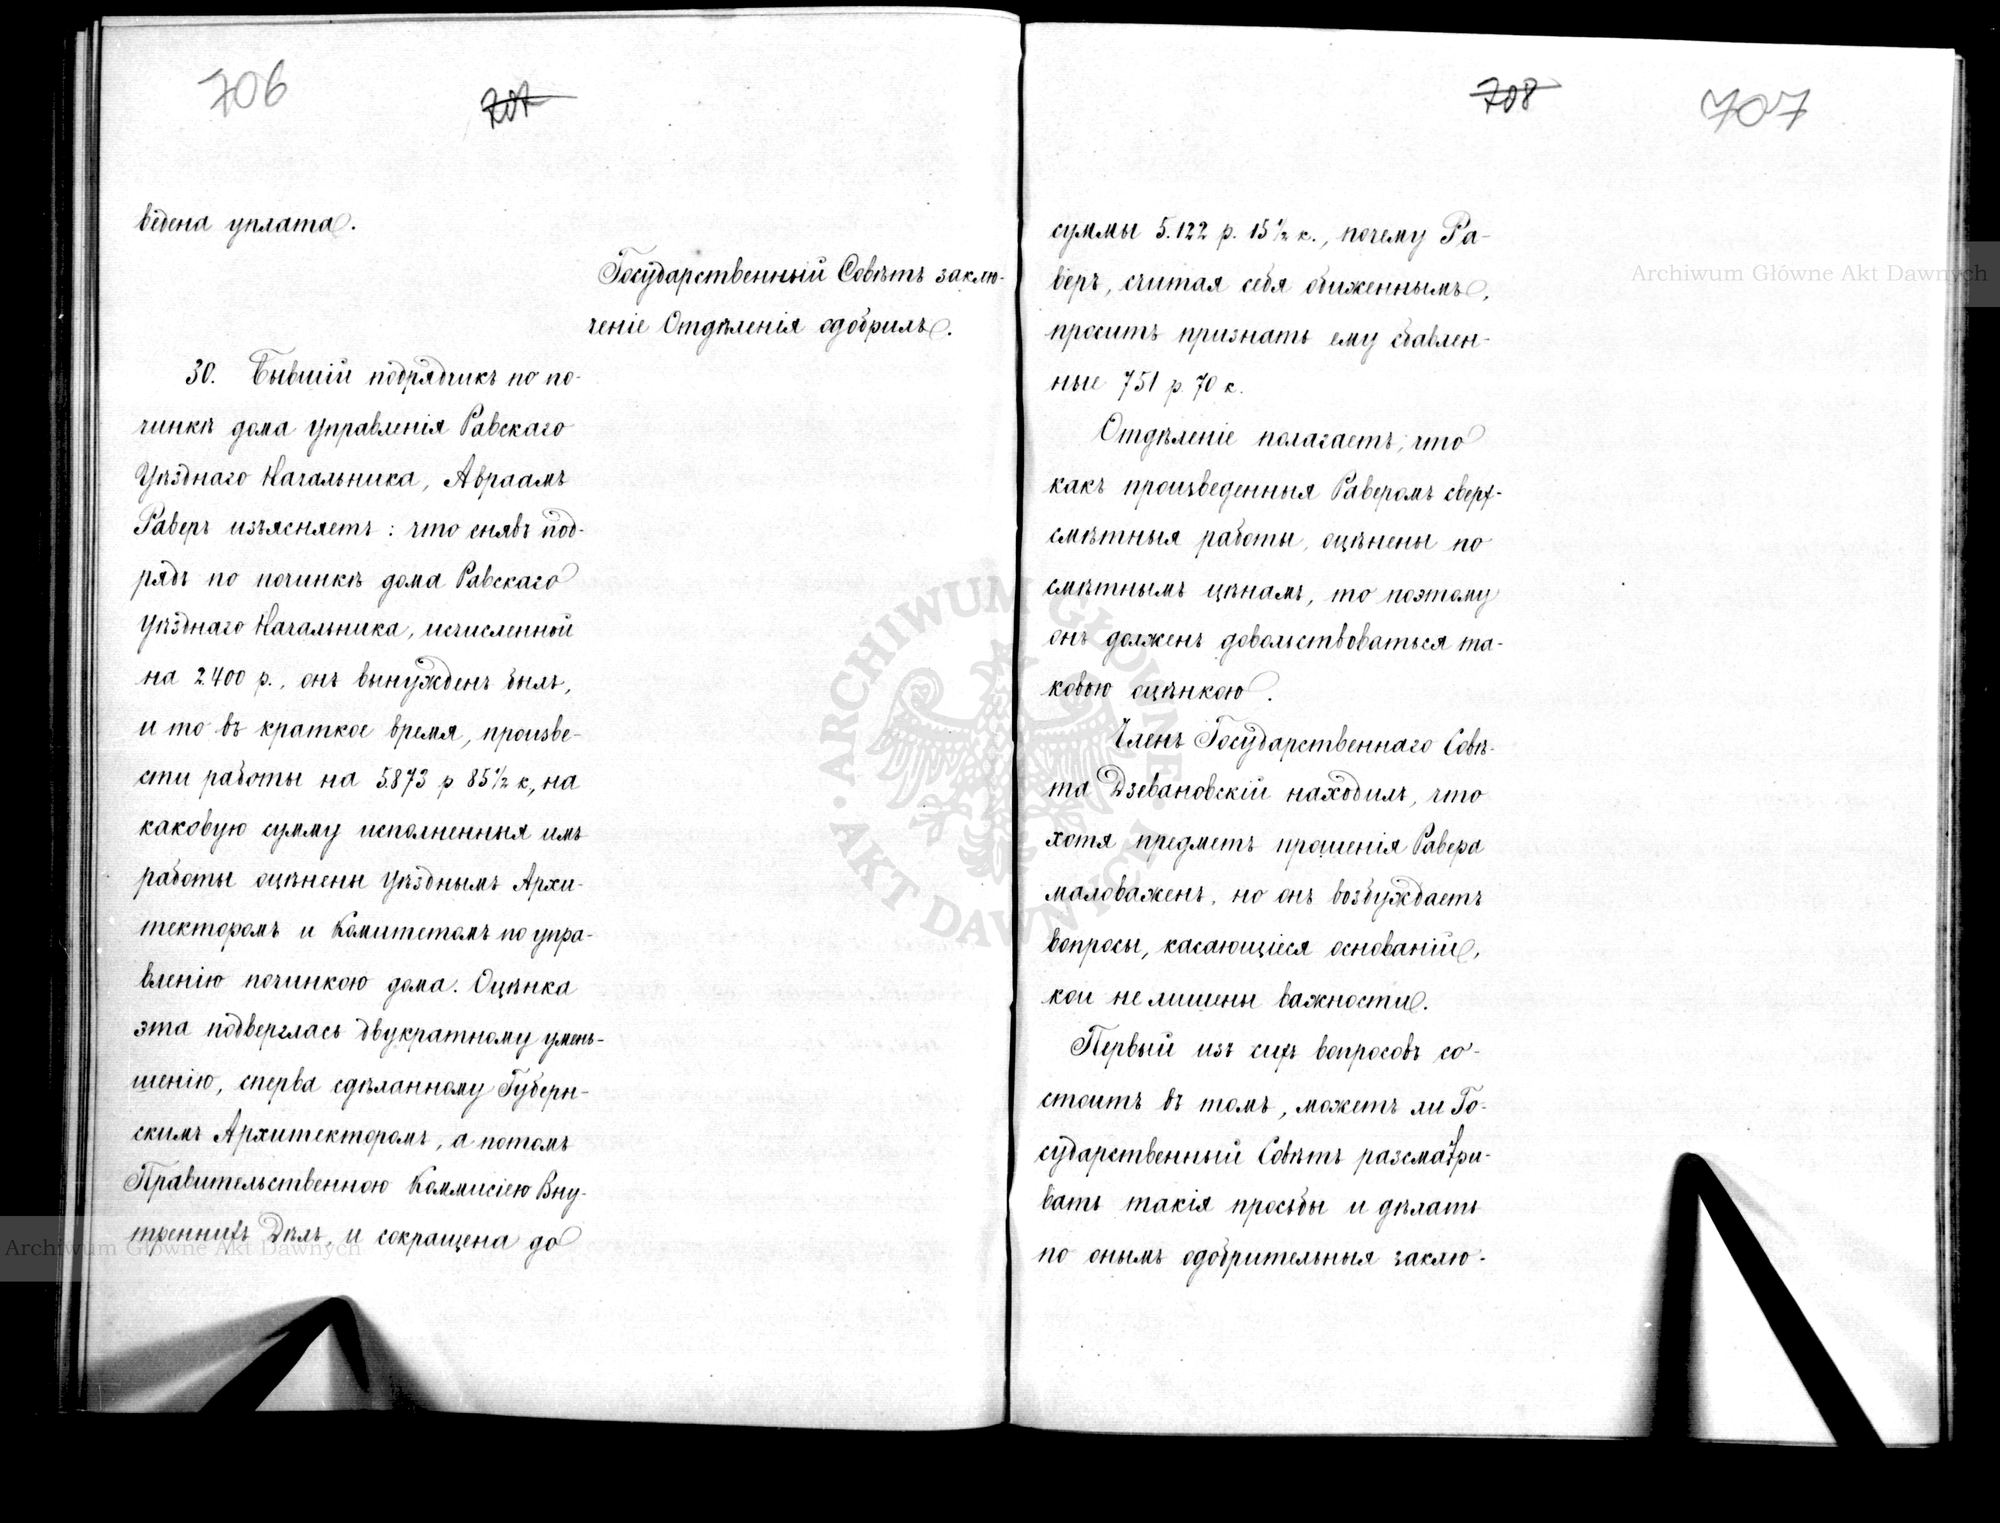 706
707
ведена уплата.
Государственный Совѣтъ заклю-
ченіе Отдѣленія одобрилъ.
30. Бывшій подрядчикъ по по-
чинкѣ дома управленія Равскаго
Уѣзднаго Начальника, Авраамъ
Раверъ изъясняетъ: что снявъ под-
рядъ по починкѣ дома Равскаго
Уѣзднаго Начальника, исчисленной
на 2.400 р., онъ вынужденъ былъ,
и то въ краткое время, произве-
сти работы на 5.873 р 85½ к., на
каковую сумму исполненныя имъ
работы оцѣнены Уѣзднымъ Архи-
текторомъ и Комитетомъ по упра-
вленію починкою дома. Оцѣнка
эта подверглась двукратному умень-
шенію, сперва сдѣланному Губерн-
скимъ Архитекторомъ, а потомъ
Правительственною Коммисіею Вну-
треннихъ Дѣлъ, и сокращена до
708
707
суммы 5.122 р. 15½ к., почему Ра-
веръ, считая себя обиженнымъ,
проситъ признать ему сбавлен-
ные 751 р. 70 к.
Отдѣленіе полагаетъ, что
какъ произведенныя Раверомъ сверх-
смѣтныя работы, оцѣнены по
смѣтнымъ цѣнамъ, то поэтому
онъ долженъ довольствоваться та-
ковою оцѣнкою.
Членъ Государственнаго Совѣ-
та Дзевановскій находилъ, что
хотя предметъ прошенія Равера
маловаженъ, но онъ возбуждаетъ
вопросы, касающіеся основаній,
кои не лишены важности.
Первый изъ сихъ вопросовъ со-
стоитъ въ томъ, можетъ ли Го-
сударственный Совѣтъ разсматри-
вать такія просьбы и дѣлать
по онымъ одобрительныя заклю-
Archiwum Główne Akt Dawnych
Archiwum Główne Akt Dawnych
ARCHIWUM GŁÓWNE • AKT DAWNYCH •